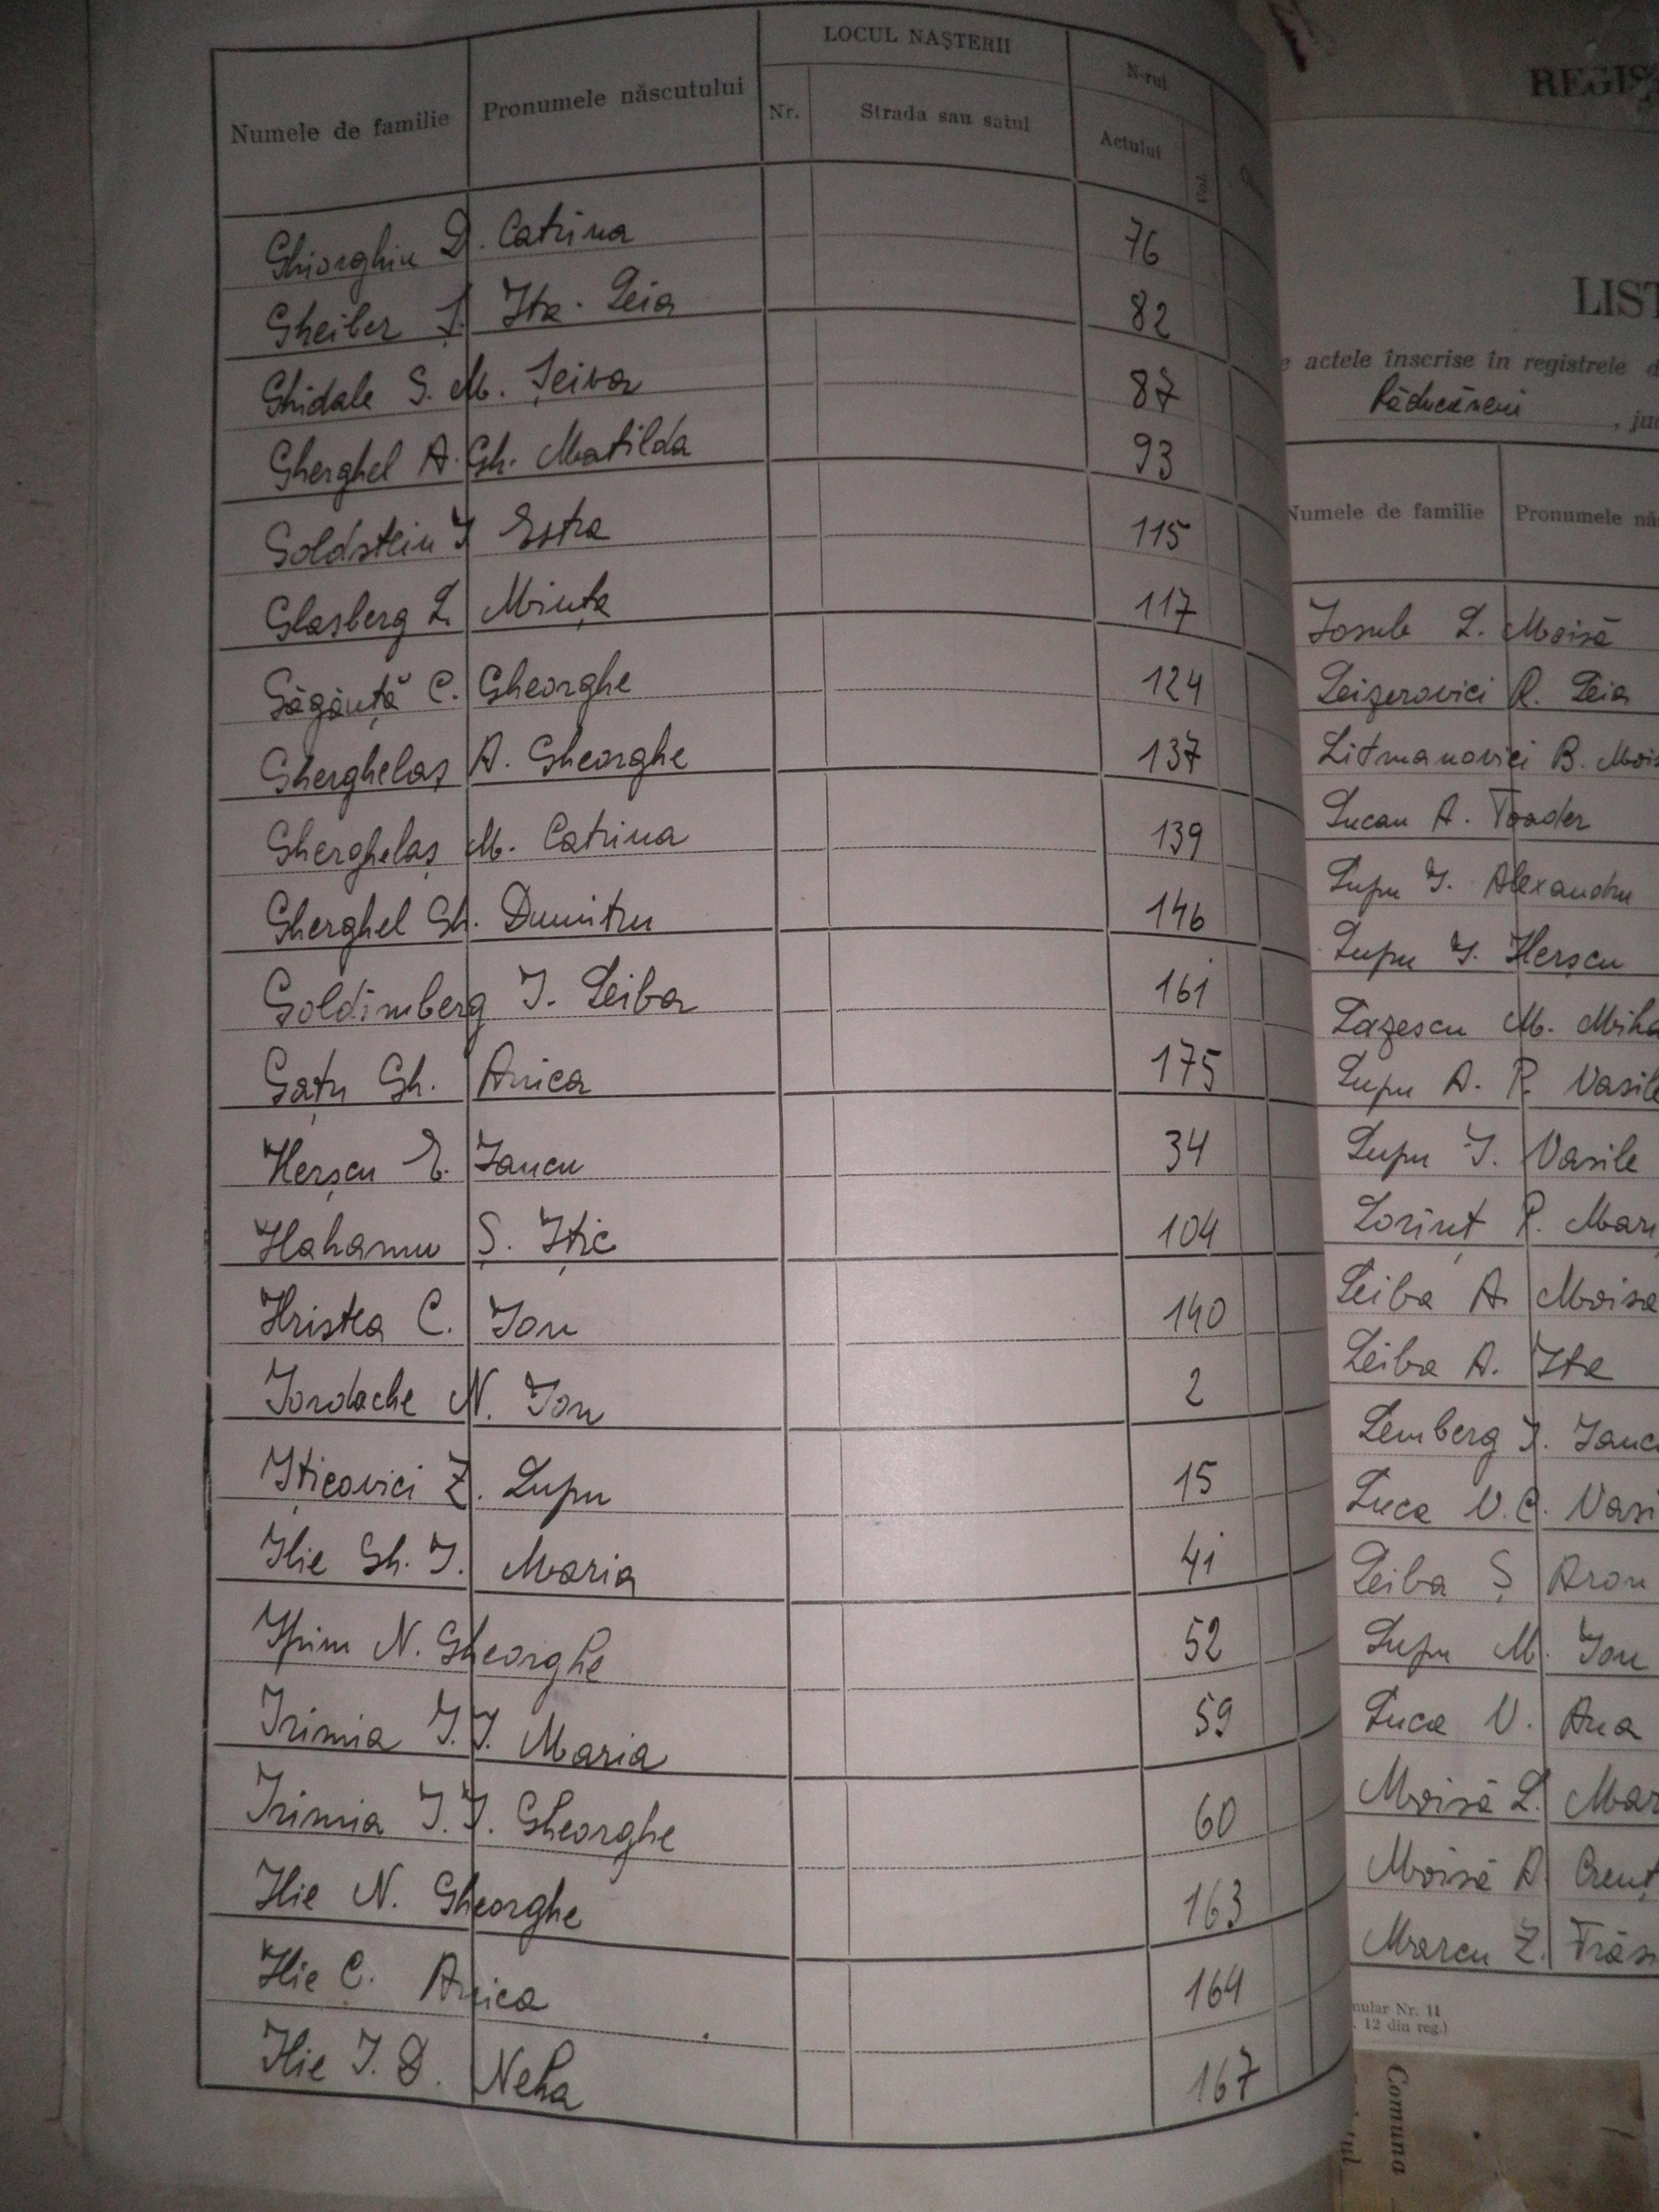 LOCUL NAȘTERII
N-rul
Numele de familie Pronumele născutului Nr. Strada sau satul Actului Vol.
Ghiorghiu D. Catrina 76
Gheiber Ș. Ita-Leia 82
Ghidale S. M. Șeiva 87
Gherghel A. Gh. Matilda 93
Goldstein I Estra 115
Glasberg L. Mința 117
Găgăuță C. Gheorghe 124
Gherghelaș A. Gheorghe 137
Gherghelaș M. Catrina 139
Gherghel Gh. Dumitru 146
Goldimberg I. Leiba 161
Gațu Gh. Anica 175
Herșcu E. Iancu 34
Hahamu Ș. Ițic 104
Hristea C. Ion 140
Iordache N. Ion 2
Ițicovici Z. Lupu 15
Ilie Gh. I. Maria 41
Ifrim N. Gheorghe 52
Irimia I. I. Maria 59
Irimia I. I. Gheorghe 60
Ilie N. Gheorghe 163
Ilie C. Anica 164
Ilie I. D. Neha 167
REGIS
LIST
e actele înscrise în registrele d
Răducăneni , ju
Numele de familie Pronumele nă
Iosub L. Moisă
Leizerovici R. Leia
Litmanovici B. Mois
Lucan A. Toader
Lupu I. Alexandru
Lupu I. Herșcu
Lazescu M. Miha
Lupu A. P. Vasile
Lupu I. Vasile
Lorinț P. Mari
Leiba A. Moisa
Leiba A. Ita
Lemberg I. Iancu
Luca V. C. Vasi
Leiba Ș Aron
Lupu M. Ion
Luca V. Ana
Moisă L. Mar
Moisă A Crenț
Marcu Z. Trăsi
mular Nr. 11
. 12 din reg.)
Comuna